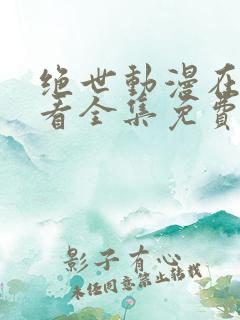 绝世動漫在
看全集免費
影子有心
未任同意禁止转载